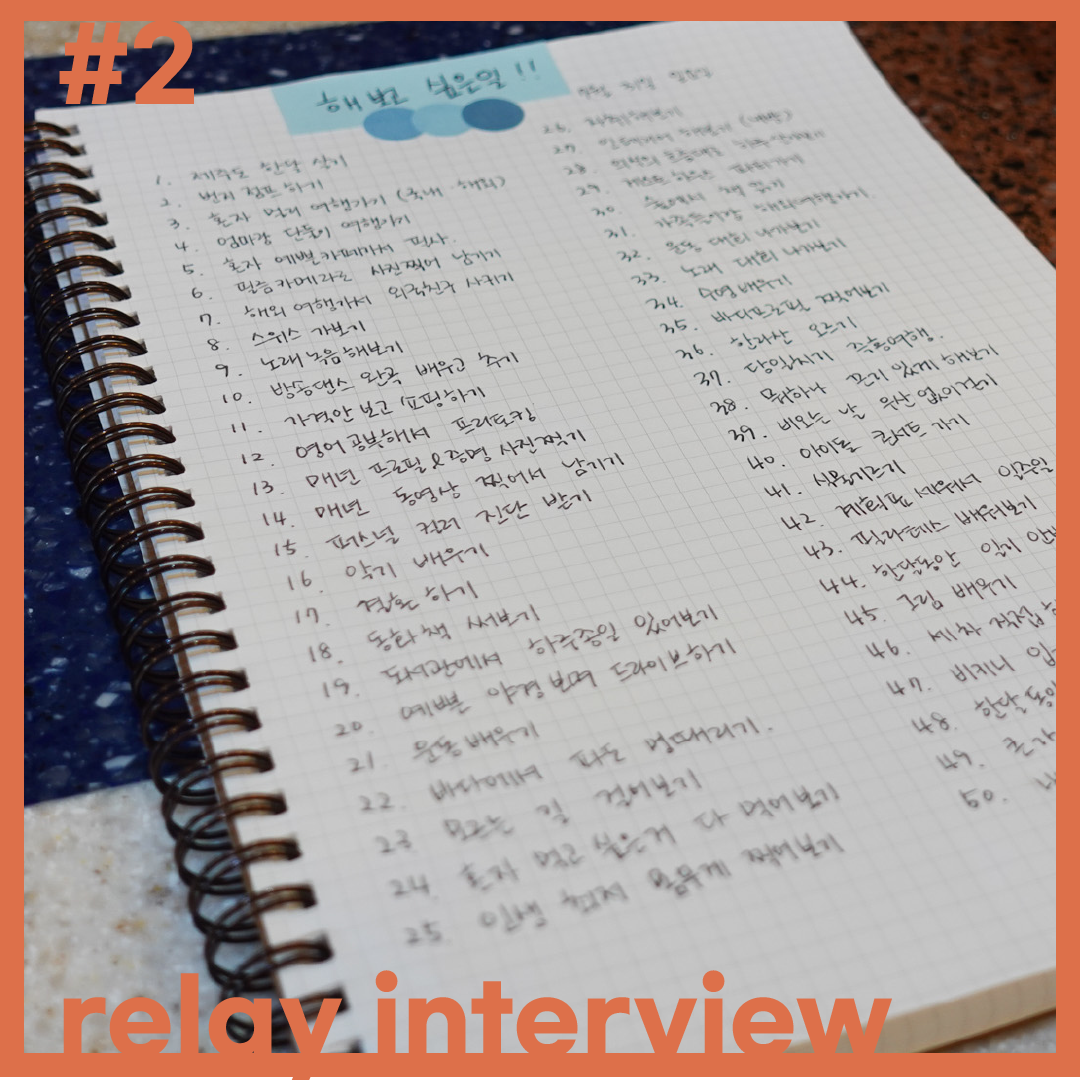 #2
해보고 싶은일 !!
1. 제주도 한달 살기
2. 번지 점프 하기
3. 혼자 멀리 여행가기 (국내, 해외)
4. 엄마랑 단둘이 여행가기
5. 혼자 예쁜카페가서 필사.
6. 필름카메라로 사진찍어 남기기
7. 해외여행가서 외국친구 사귀기
8. 스위스 가보기
9. 노래 녹음해보기
10. 방송댄스 완곡 배우고 추기
11. 가격안보고 쇼핑하기
12. 영어공부해서 프리토킹
13. 매년 프로필&증명 사진찍기
14. 매년 동영상 찍어서 남기기
15. 퍼스널 컬러 진단 받기
16. 악기 배우기
17. 결혼하기
18. 동화책 써보기
19. 도서관에서 하루종일 있어보기
20. 예쁜 야경보며 드라이브하기
21. 운동배우기
22. 바다에서 파도 멍때리기.
23 모르는 길 걸어보기
24. 혼자 먹고싶은거 다 먹어보기
25. 인생 찍어보기
26. 해보기
27. 해보기
28.
29.
30. 책 읽기
31. 해외여행가기.
32. 운동 대회 나가보기
33. 노래 대회 나가보기
34. 수영배우기
35. 바디프로필 찍어보기
36. 한라산 오르기
37. 당일치기 즉흥여행.
38. 뭐하나 끈기 있게 해보기
39. 비오는 날 우산 없이걷기
40. 아이돌 콘서트 가기
41. 식물키우기
42. 계획표 세워서 일주일
43. 필라테스 배워보기
44. 한달동안
45. 그림 배우기
46. 세차 직접
47. 비키니
48. 한달동안
49.
50.
relay interview